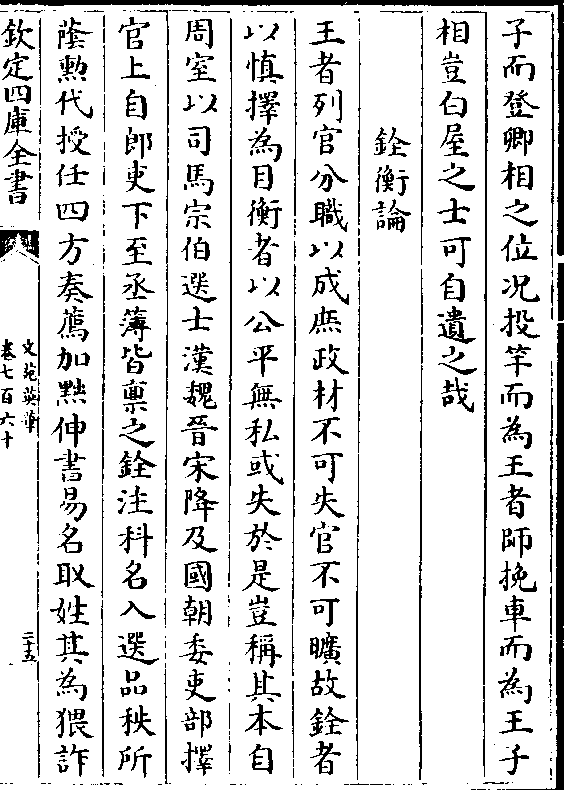 子而登卿相之位况投竿而為王者師挽車而為王子
相豈白屋之士可自遺之哉
銓衡論
王者列官分職以成庶政材不可失官不可曠故銓者
以慎擇為目衡者以公平無私或失於是豈稱其本自
周室以司馬宗伯選士漢魏晉宋降及國朝委吏部擇
官上自郎吏下至丞簿皆稟之銓注科名入選品秩所
蔭勲代授任四方奏薦加㸃伸書易名取姓其為猥詐
欽定四庫全書
文苑英華
卷七百六十
二十五